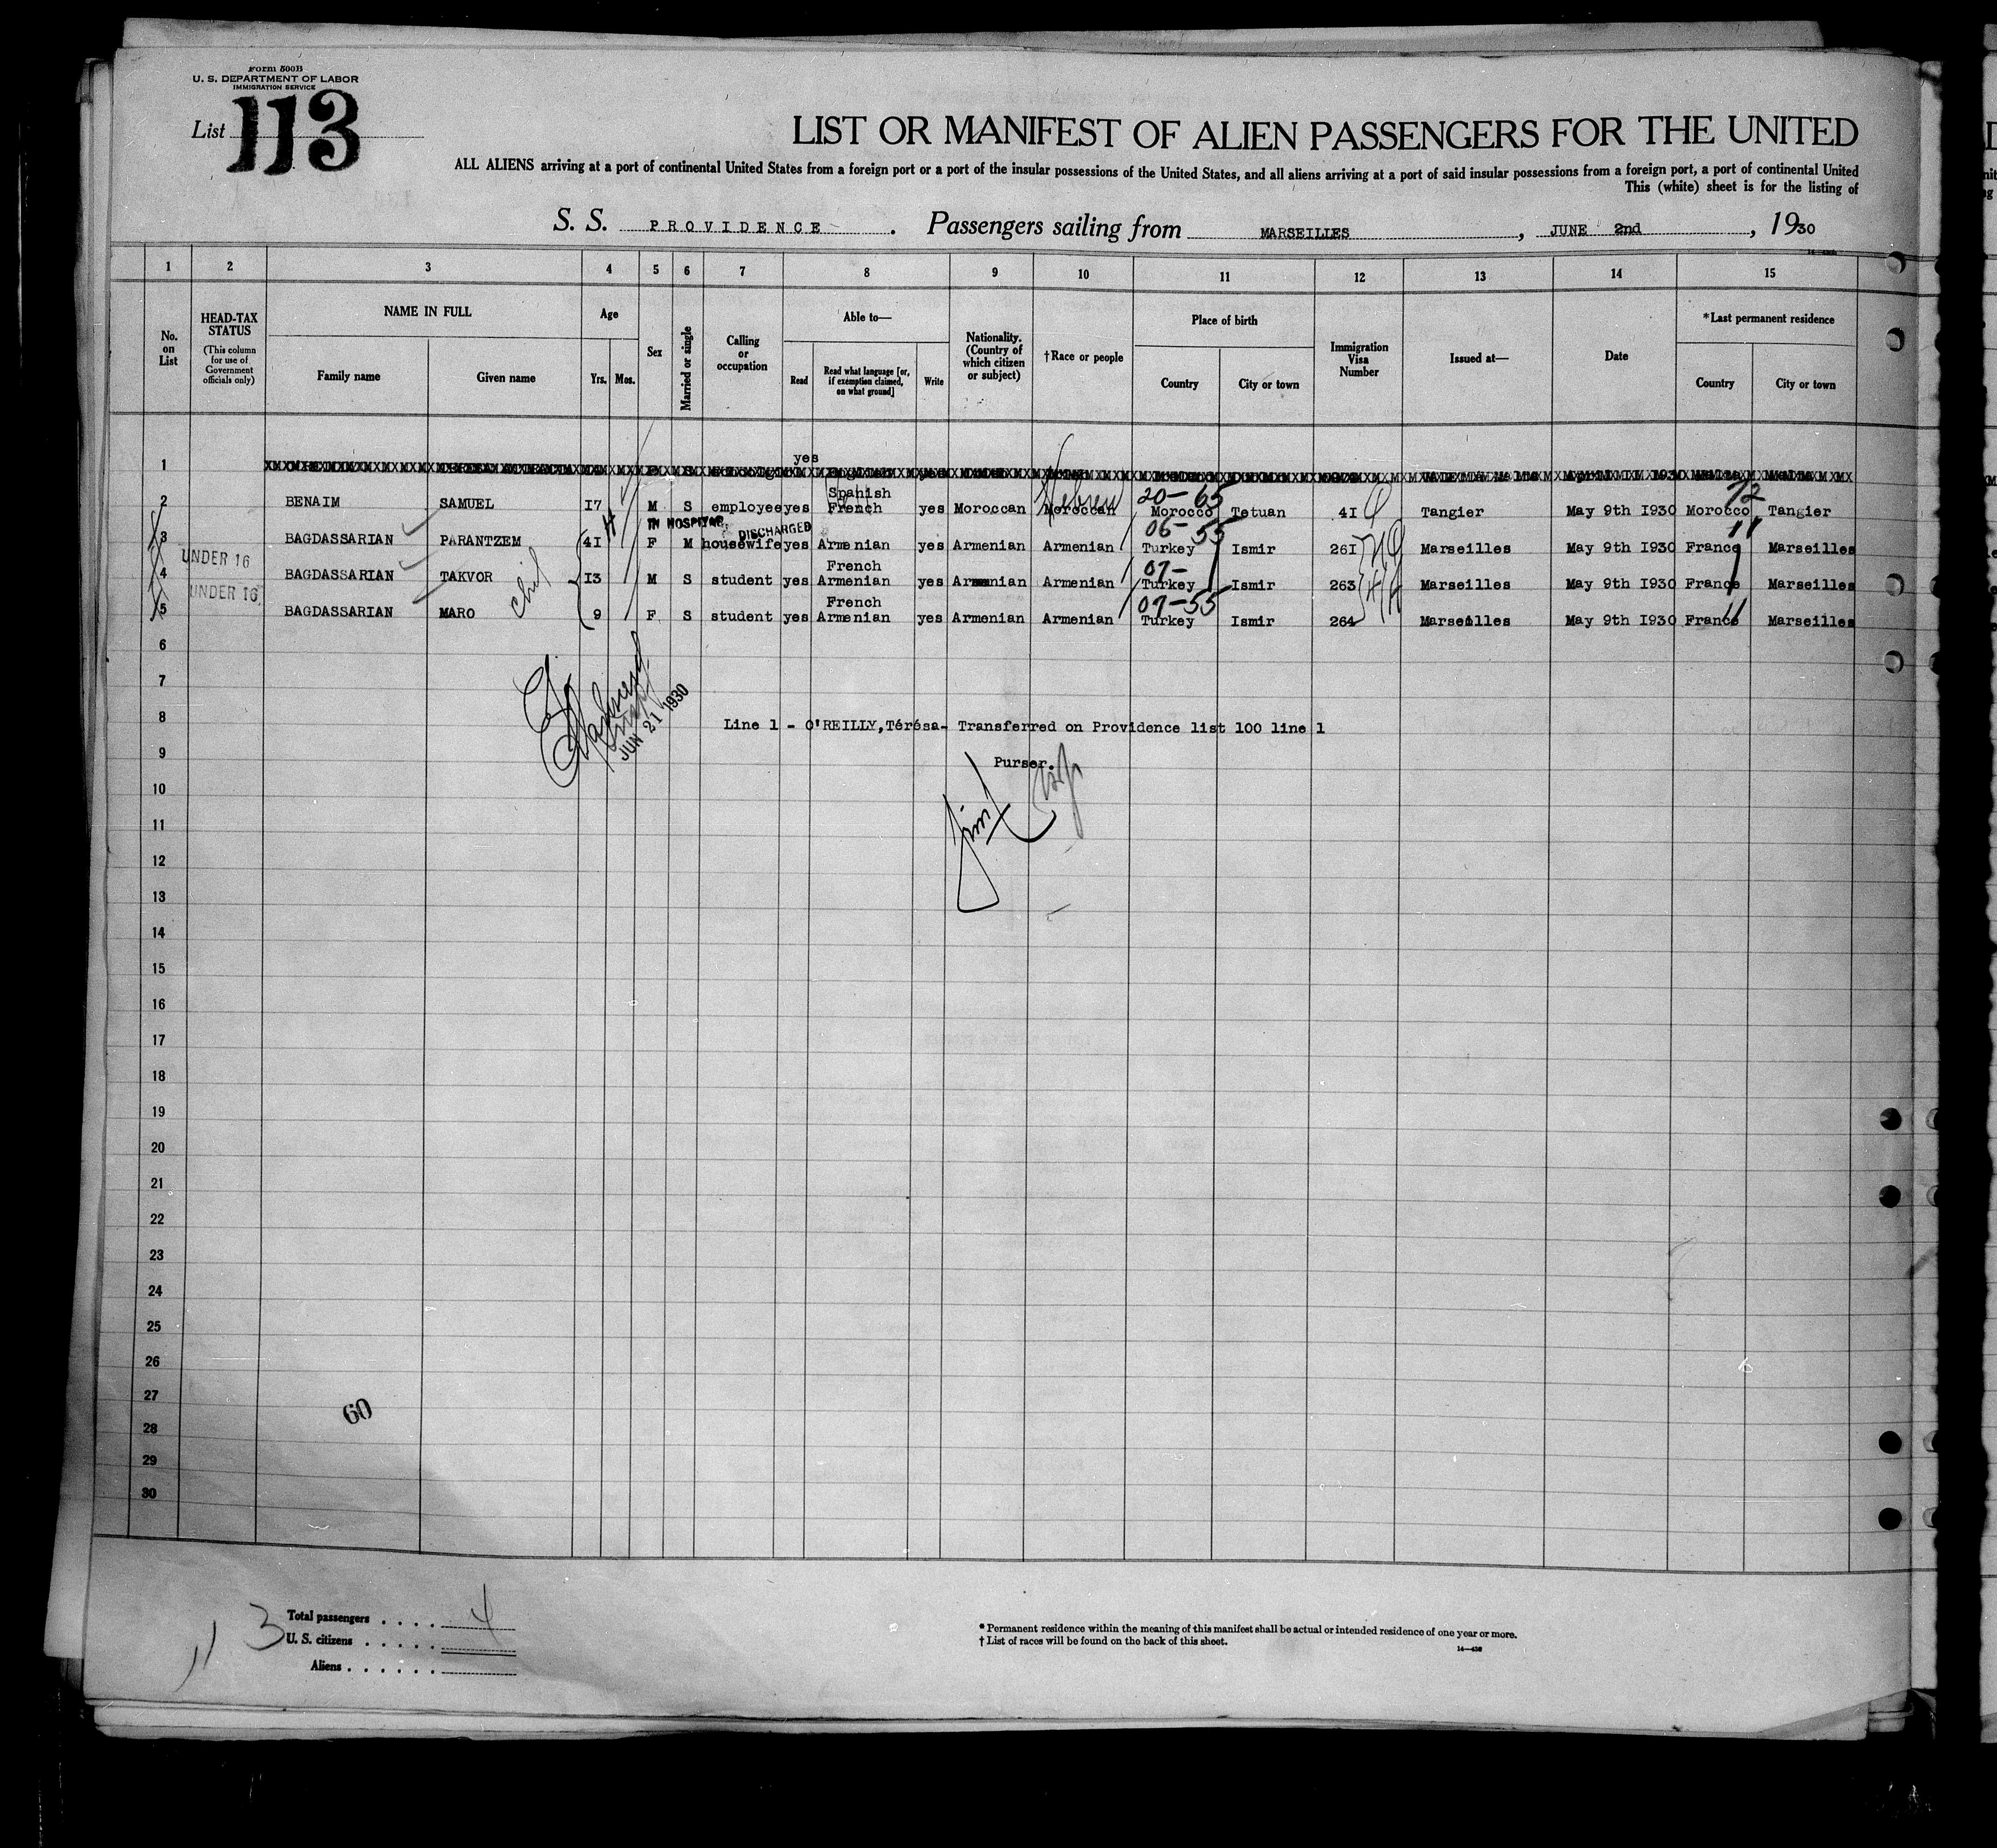 Form 500B
U. S. DEPARTMENT OF LABOR
IMMIGRATION SERVICE
List 113
LIST OR MANIFEST OF ALIEN PASSENGERS FOR THE UNITED
ALL ALIENS arriving at a port of continental United States from a foreign port or a port of the insular possessions of the United States, and all aliens arriving at a port of said insular possessions from a foreign port, a port of continental United
This (white) sheet is for the listing of
S. S. PROVIDENCE. Passengers sailing from MARSEILLES, JUNE 2nd, 1930
1 2 3 4 5 6 7 8 9 10 11 12 13 14 15
No. on List
HEAD-TAX STATUS
(This column for use of Government officials only)
NAME IN FULL
Family name Given name
Age
Yrs. Mos.
Sex
Married or single
Calling or occupation
Able to—
Read
Read what language [or, if exemption claimed, on what ground]
Write
Nationality. (Country of which citizen or subject)
†Race or people
Place of birth
Country City or town
Immigration Visa Number
Issued at—
Date
*Last permanent residence
Country City or town
1 yes
Spanish Hebrew 20-65 72
2 BENAIM SAMUEL I7 M S employee yes French yes Moroccan Moroccan Morocco Tetuan 4I Tangier May 9th I930 Morocco Tangier
IN HOSPITAL DISCHARGED 06-55 11
3 BAGDASSARIAN PARANTZEM 4I F M housewife yes Armenian yes Armenian Armenian Turkey Ismir 26I Marseilles May 9th I930 France Marseilles
UNDER 16
French 07-
4 BAGDASSARIAN TAKVOR I3 M S student yes Armenian yes Armenian Armenian Turkey Ismir 263 Marseilles May 9th I930 France Marseilles
UNDER 16
French 07-55
5 BAGDASSARIAN MARO 9 F S student yes Armenian yes Armenian Armenian Turkey Ismir 264 Marseilles May 9th I930 France Marseilles
6
7
JUN 21 1930
8 Line 1 - O'REILLY,Térésa- Transferred on Providence list 100 line 1
9 Purser.
10
11
12
13
14
15
16
17
18
19
20
21
22
23
24
25
26
27
60
28
29
30
Total passengers . . . . 4
3
U. S. citizens . . . . .
Aliens . . . . . .
11
* Permanent residence within the meaning of this manifest shall be actual or intended residence of one year or more.
† List of races will be found on the back of this sheet.